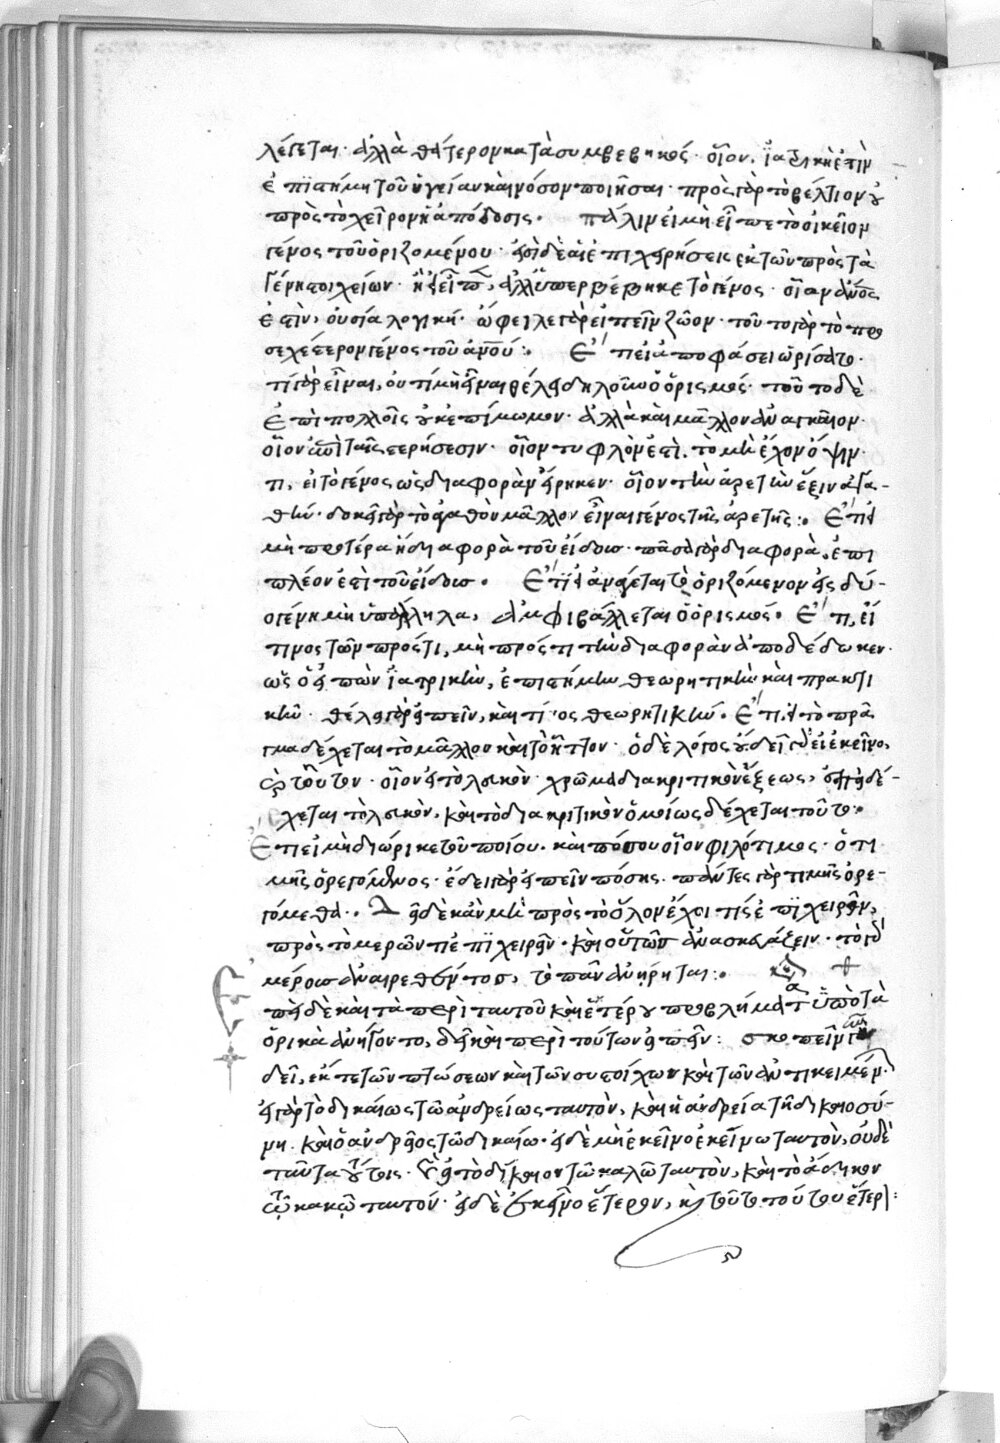 λέγεται· ἀλλὰ θάτερον κατὰ συμβεβηκός· οἷον, ἰατρική ἐστιν
ἐπιστήμη τοῦ ὑγείαν καὶ νόσον ποιῆσαι· πρὸς γὰρ τὸ βέλτιον οὐ
πρὸς τὸ χεῖρον ἡ ἀπόδοσις. πάλιν εἰ μὴ εἶπε τὸ οἰκεῖον
γένος τοῦ ὁριζομένου· αἱ δὲ ἐπιχειρήσεις ἐκ τῶν πρὸς τὰ
γένη στοιχείων· ἢ εἶπε, ἀλλ' ὑπερβέβηκε τὸ γένος· οἷον ἄνος
ἐστὶν, οὐσία λογική· ὤφειλε γὰρ εἰπεῖν ζῶον· τοῦτο γὰρ τὸ προ
σεχέστερον γένος τοῦ ἀνου:. Ἔτι εἰ ἀποφάσει ὡρίσατο·
τί γὰρ εἶναι, οὐ τί μὴ εἶναι θέλει δηλοῦν ὁ ὁρισμός· τοῦτο δὲ
ἐπὶ πολλοῖς οὐκ ἐπίμωμον· ἀλλὰ καὶ μᾶλλον ἀναγκαῖον·
οἷον ἐπὶ ταῖς στερήσεσιν· οἷον τυφλόν ἐστι, τὸ μὴ ἔχον ὄψιν· 
τι, εἰ τὸ γένος ὡς διαφορὰν εἴρηκεν· οἷον τὴν ἀρετὴν ἕξιν ἀγα-
θήν· δοκεῖ γὰρ τὸ ἀγαθὸν μᾶλλον εἶναι γένος τῆς ἀρετῆς:. Ἔτι εἰ
μὴ προτέρα ἡ διαφορὰ τοῦ εἴδους· πᾶσα γὰρ διαφορὰ, ἐπι
πλέον ἐστὶ τοῦ εἴδους. Ἔτι εἰ ἀνάγεται τὸ ὁριζόμενον εἰς δύ-
ο γένη μὴ ὑπάλληλα, ἀμφιβάλλεται ὁ ὁρισμός. Ἔτι, εἴ
τινος τῶν πρός τι, μὴ πρός τι τὴν διαφορὰν ἀποδέδωκεν·
ὡς ὁ εἰπὼν ἰατρικὴν, ἐπιστήμην θεωρητικὴν καὶ πρακτι
κήν· θέλει γὰρ εἰπεῖν, καὶ τίνος θεωρητικήν. Ἔτι, εἰ τὸ πρᾶ
γμα δέχεται τὸ μᾶλλον καὶ τὸ ἧττον· ὁ δὲ λόγος οὔ· δεῖ γὰρ εἰ ἐκεῖνο,
καὶ τοῦτον· οἷον εἰ τὸ λευκὸν χρῶμα διακριτικὸν ἕξεως, ἐπιδέ-
χεται τὸ λευκὸν, καὶ τὸ διακριτικὸν ὁμοίως δέχεται τοῦτο.
Ἔτι εἰ μὴ διώρικε τοῦ ποίου· καὶ πόσου οἷον φιλότιμος· ὁ τι
μῆς ὀρεγόμενος· ἔδει γὰρ εἰπεῖν πόσης· πάντες γὰρ τιμῆς ὀρε-
γόμεθα.. Δεῖ δὲ κἂν μὴ πρὸς τὸ ὅλον ἔχοι τις ἐπιχειρεῖν,
πρὸς τὸ μερῶν τι ἐπιχειρεῖν· καὶ οὕτως ἀνασκευάζειν· τοῦ γὰρ
μέρους ἀναιρεθέντος, τὸ πᾶν ἀνῄρηται:.
πεὶ δὲ καὶ τὰ περὶ ταυτοῦ καὶ ἑτέρου προβλήματα ὑπὸ τὰ
ὁρικὰ ἀνήγοντο, δεῖ καὶ περὶ τούτων εἰπεῖν: σκοπεῖν
δεῖ, ἔκ τε τῶν πτώσεων καὶ τῶν συστοίχων καὶ τῶν ἀντικειμέν.
εἰ γὰρ τὸ δικαίως τῶ ἀνδρείως ταυτὸν, καὶ ἡ ἀνδρεία τῆ δικαιοσύ-
νη. καὶ ὁ ἀνδρεῖος τῶ δικαίω· εἰ δὲ μὴ ἐκεῖνο ἐκείνω ταυτὸν, οὐδὲ
ταῦτα τούτοις· εἰ τὸ δίκαιον τῶ καλῶ ταυτὸν, καὶ τὸ ἄδικον
τῷ κακῷ ταυτόν· εἰ δὲ ἐκεῖνο ἕτερον, καὶ τοῦτο τούτου ἕτερον: